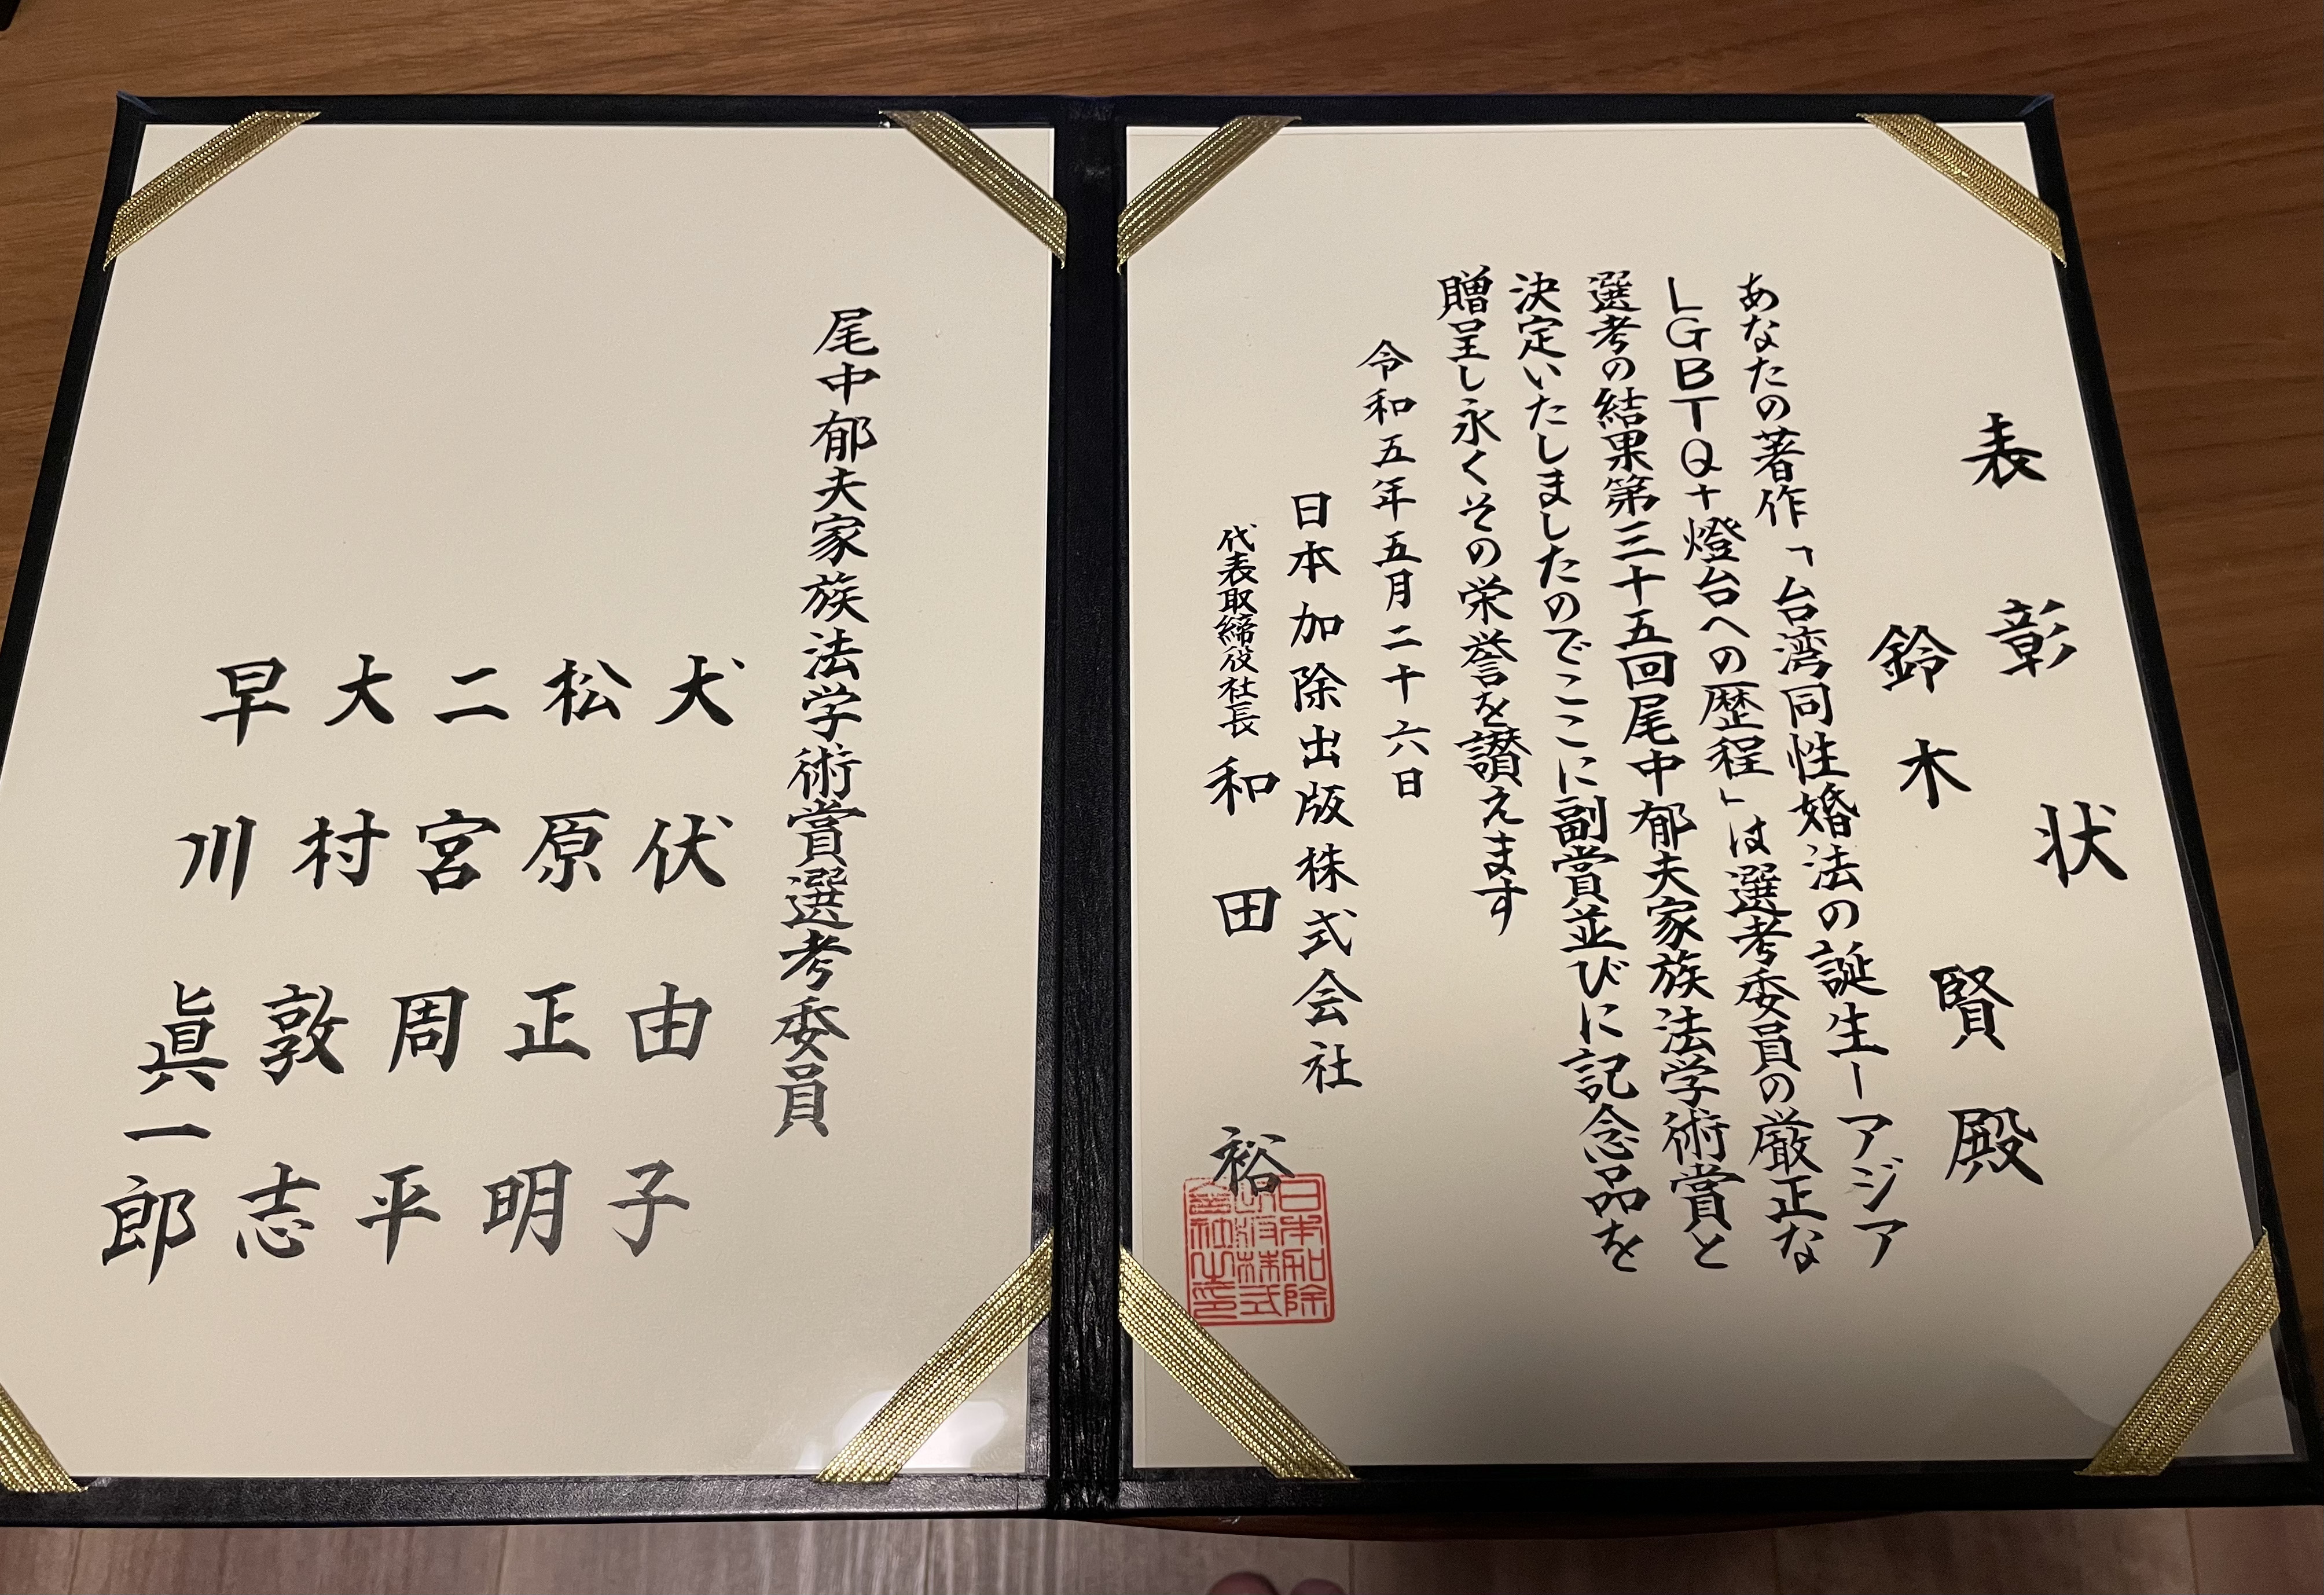 表彰状
鈴木賢殿
あなたの著作「台湾同性婚法の誕生ーアジア
LGBTQ+燈台への歴程」は選考委員の厳正な
選考の結果第三十五回尾中郁夫家族法学術賞と
決定いたしましたのでここに副賞並びに記念品を
贈呈し永くその栄誉を讃えます
令和五年五月二十六日
日本加除出版株式会社
代表取締役社長 和田裕
日本加除
出版株式
會社之印
尾中郁夫家族法学術賞選考委員
犬伏由子
松原正明
二宮周平
大村敦志
早川眞一郎